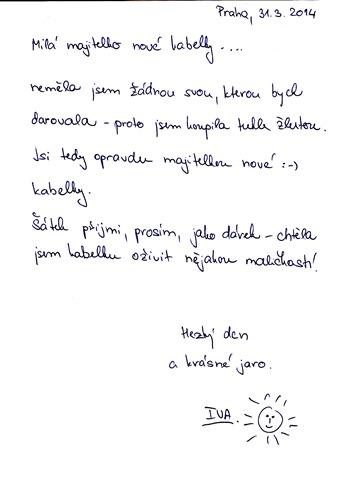 Praha, 31.3.2014
Milá majitelko nové kabelky ....
neměla jsem žádnou svou, kterou bych
darovala - proto jsem koupila tuhle žlutou.
Jsi tedy opravdu majitelkou nové :-)
kabelky.
Šátek přijmi, prosím, jako dárek - chtěla
jsem kabelku oživit nějakou maličkostí!
Hezký den
a krásné jaro.
IVA.